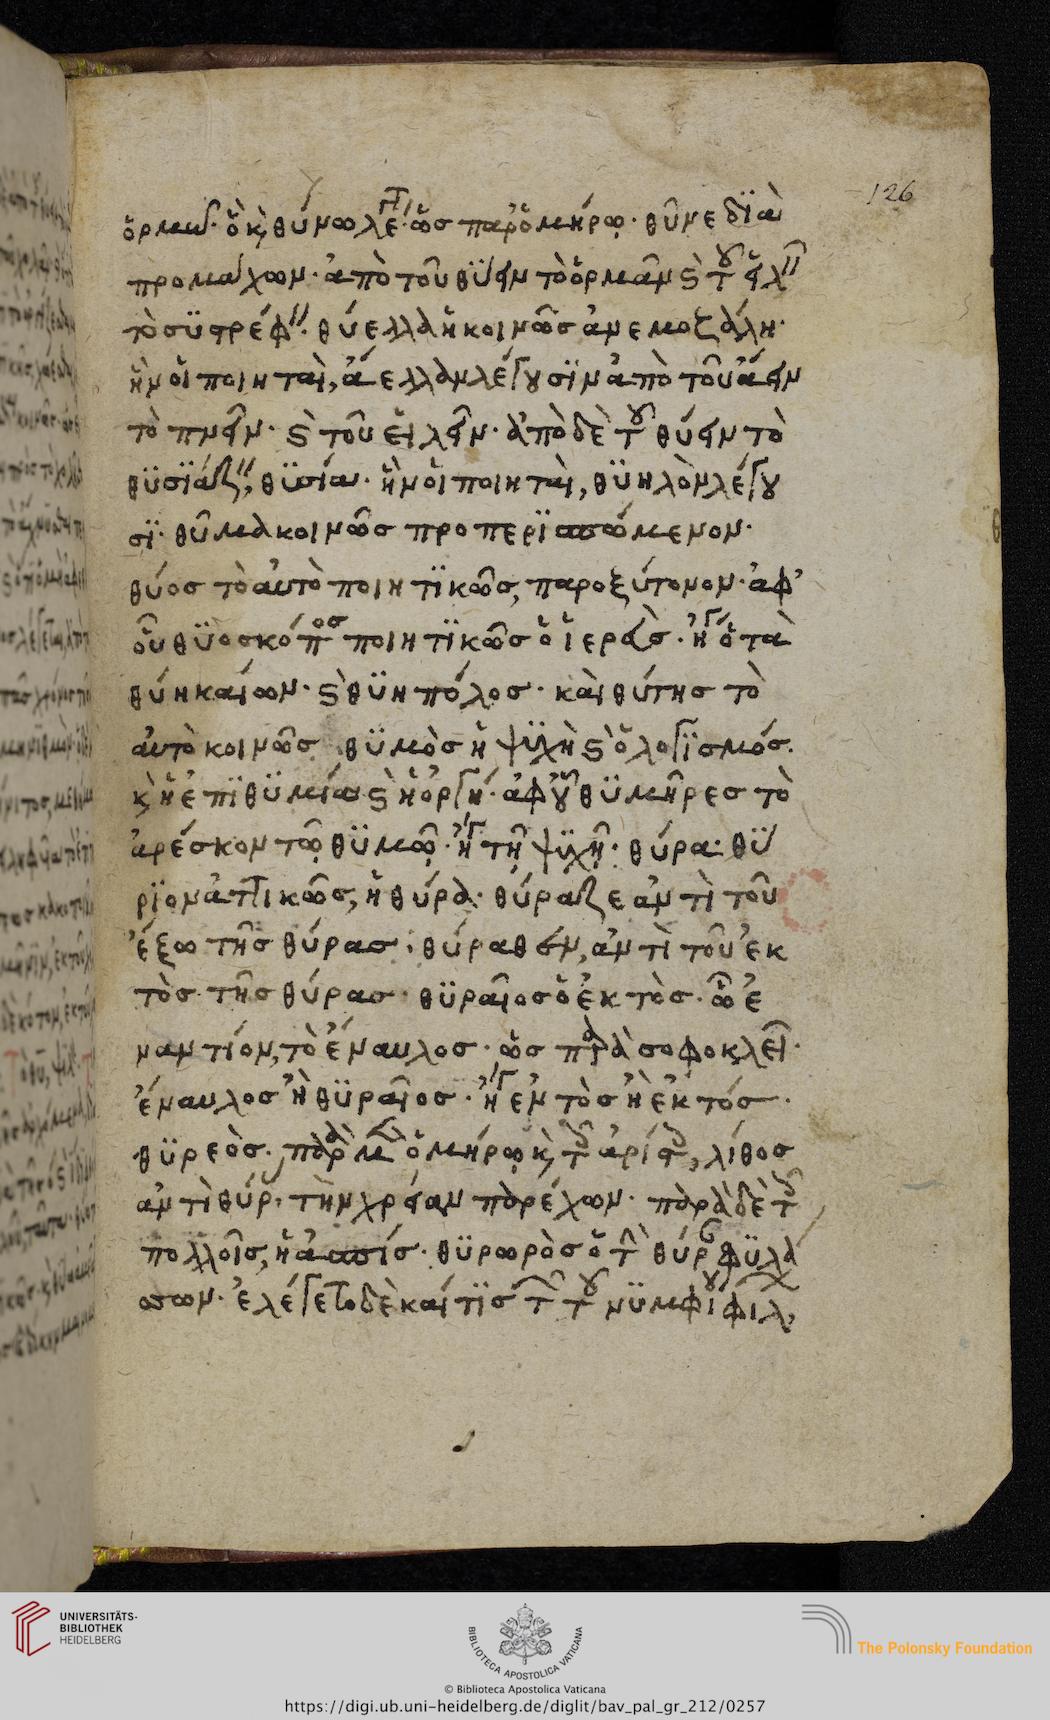 126
ὁρμῶ· ὃ κ θύνω λέγεται· ὡς παρ' ὁμήρῳ· θῦνε διὰ
προμάχων· ἀπὸ τοῦ θύειν τὸ ὁρμᾶν
τὸ συστρέφ θύελλα ἡ κοινῶς ἀνεμοζάλη·
ἣν οἱ ποιηταὶ, ἄελλαν λέγουσιν ἀπὸ τοῦ ἄειν
τὸ πνεῖν· καὶ τοῦ εἱλεῖν· ἀπὸ δὲ τοῦ θύειν τὸ
θυσιάζ, θυσία· ἣν οἱ ποιηταὶ, θυηλὸν λέγου
σι· θῦμα κοινῶς προπερισπώμενον·
θύος τὸ αὐτὸ ποιητικῶς, παροξύτονον· ἀφ'
οὗ θυοσκόπος ποιητικῶς ὁ ἱερεὺς· ἤγουν ὁ τὰ
θύη καίων· καὶ θυηπόλος· καὶ θύτης τὸ
αὐτὸ κοινῶς θυμὸς ἡ ψυχὴ καὶ ὁ λογισμός.
κ ἡ ἐπιθυμία καὶ ἡ ὀργή· ἀφ' οὗ θυμῆρες τὸ
ἀρέσκον τῷ θυμῷ· ἤγουν τῇ ψυχῇ· θύρα· θύ
ριον ἀττικῶς, ἡ θύρα· θύραζε ἀντὶ τοῦ
ἔξω τῆς θύρας· θύραθεν, ἀντὶ τοῦ ἐκ
τὸς τῆς θύρας· θυραῖος ὁ ἐκτὸς· ᾧ ἐ
ναντίον, τὸ ἔναυλος· ὡς παρὰ σοφοκλεῖ·
ἔναυλος ἢ θυραῖος· ἤγουν ἐντὸς ἢ ἐκτός·
θυρεὸς· παρὰ μὲν ὁμήρῳ κ, τ ἀρίστ, λίθος
ἀντὶ θύρ· τὴν χρείαν παρέχων· παρὰ δὲ τοῖς
πολλοῖς, ἡ ἀσπίς· θυρωρὸς ὁ τὴν θύραν φυλάσ
σων· ἐλέγετο δὲ καί τις τῶν τοῦ νυμφίου φίλων
UNIVERSITÄTS-
BIBLIOTHEK
HEIDELBERG
BIBLIOTECA APOSTOLICA VATICANA
The Polonsky Foundation
© Biblioteca Apostolica Vaticana
https://digi.ub.uni-heidelberg.de/diglit/bav_pal_gr_212/0257